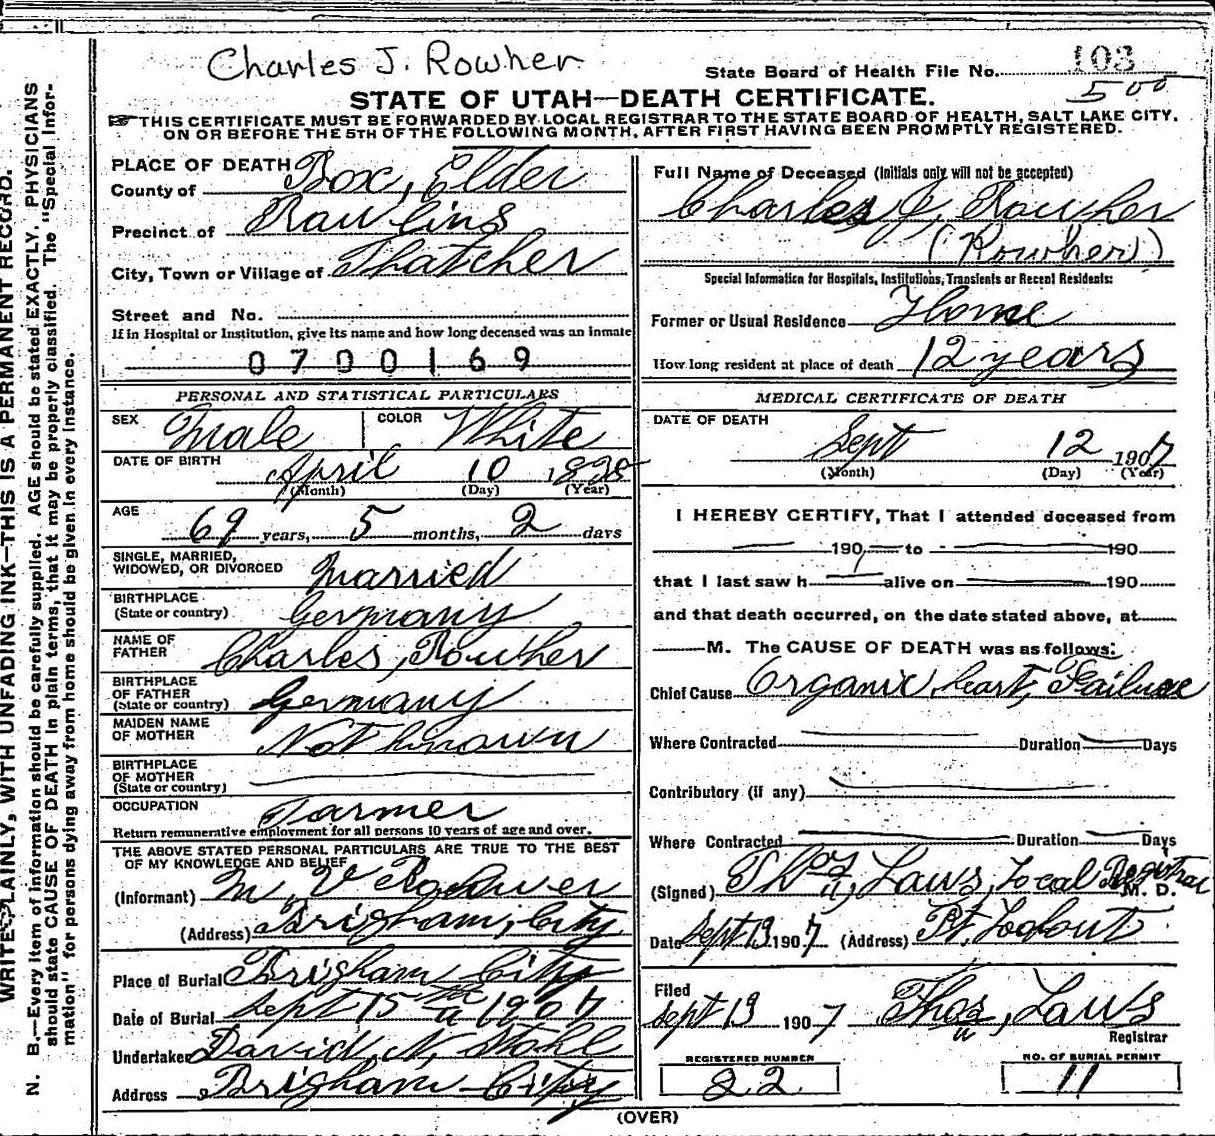 Charles J. Rowher
State Board of Health File No. 103
5 00
STATE OF UTAH—DEATH CERTIFICATE.
☞THIS CERTIFICATE MUST BE FORWARDED BY LOCAL REGISTRAR TO THE STATE BOARD OF HEALTH, SALT LAKE CITY,
ON OR BEFORE THE 5TH OF THE FOLLOWING MONTH, AFTER FIRST HAVING BEEN PROMPTLY REGISTERED.
WRITE PLAINLY, WITH UNFADING INK—THIS IS A PERMANENT RECORD.
N. B.—Every item of information should be carefully supplied. AGE should be stated EXACTLY. PHYSICIANS
should state CAUSE OF DEATH in plain terms, that it may be properly classified. The "Special Infor-
mation" for persons dying away from home should be given in every instance.
PLACE OF DEATH
County of Box, Elder
Precinct of Rawlins
City, Town or Village of Thatcher
Street and No.
If in Hospital or Institution, give its name and how long deceased was an inmate
0700169
PERSONAL AND STATISTICAL PARTICULARS
SEX Male COLOR White
DATE OF BIRTH April 10
(Month) (Day) (Year)
AGE 69 years, 5 months, 2 days
SINGLE, MARRIED,
WIDOWED, OR DIVORCED Married
BIRTHPLACE
(State or country) Germany
NAME OF
FATHER Charles, Rowher
BIRTHPLACE
OF FATHER
(State or country) Germany
MAIDEN NAME
OF MOTHER Not Known
BIRTHPLACE
OF MOTHER
(State or country)
OCCUPATION Farmer
Return remunerative employment for all persons 10 years of age and over.
THE ABOVE STATED PERSONAL PARTICULARS ARE TRUE TO THE BEST
OF MY KNOWLEDGE AND BELIEF
(Informant) M V
(Address) Brigham, City
Place of Burial Brigham City
Date of Burial Sept 15 th 1907
Undertaker David, N, Stohl
Address Brigham City
Full Name of Deceased (Initials only will not be accepted)
Charles J, Rowher
(Rowher)
Special Information for Hospitals, Institutions, Transients or Recent Residents:
Former or Usual Residence Home
How long resident at place of death 12 years
MEDICAL CERTIFICATE OF DEATH
DATE OF DEATH
Sept 12 1907
(Month) (Day) (Year)
I HEREBY CERTIFY, That I attended deceased from
190 to 190
that I last saw h alive on 190
and that death occurred, on the date stated above, at
M. The CAUSE OF DEATH was as follows:
Chief Cause Organic heart, Failure
Where Contracted Duration Days
Contributory (if any)
Where Contracted Duration Days
(Signed) Thos, Laws, Local Registrar M. D.
Date Sept 13 1907 (Address) Pt, Lookout
Filed
Sept 13 1907 Thos, Laws
Registrar
REGISTERED NUMBER
22
NO. OF BURIAL PERMIT
11
(OVER)